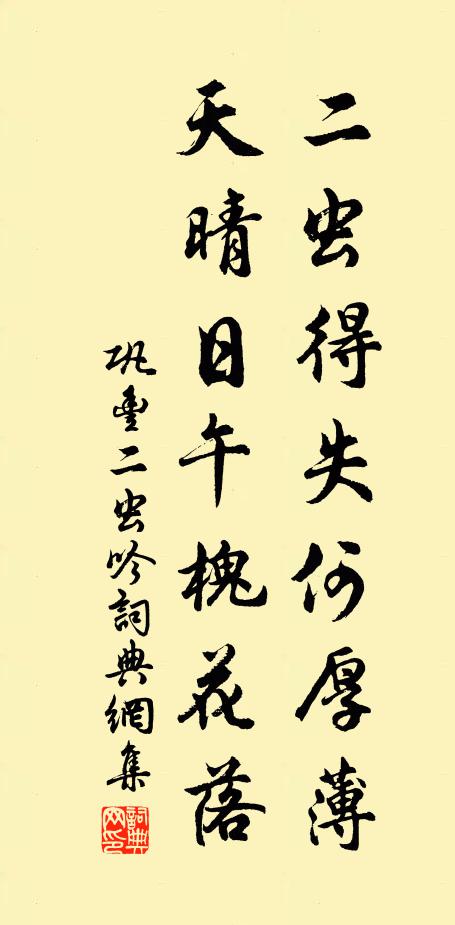 二虫得失何厚薄
天晴日午槐花落
巩豊二虫吟詞典網集
詞典网印